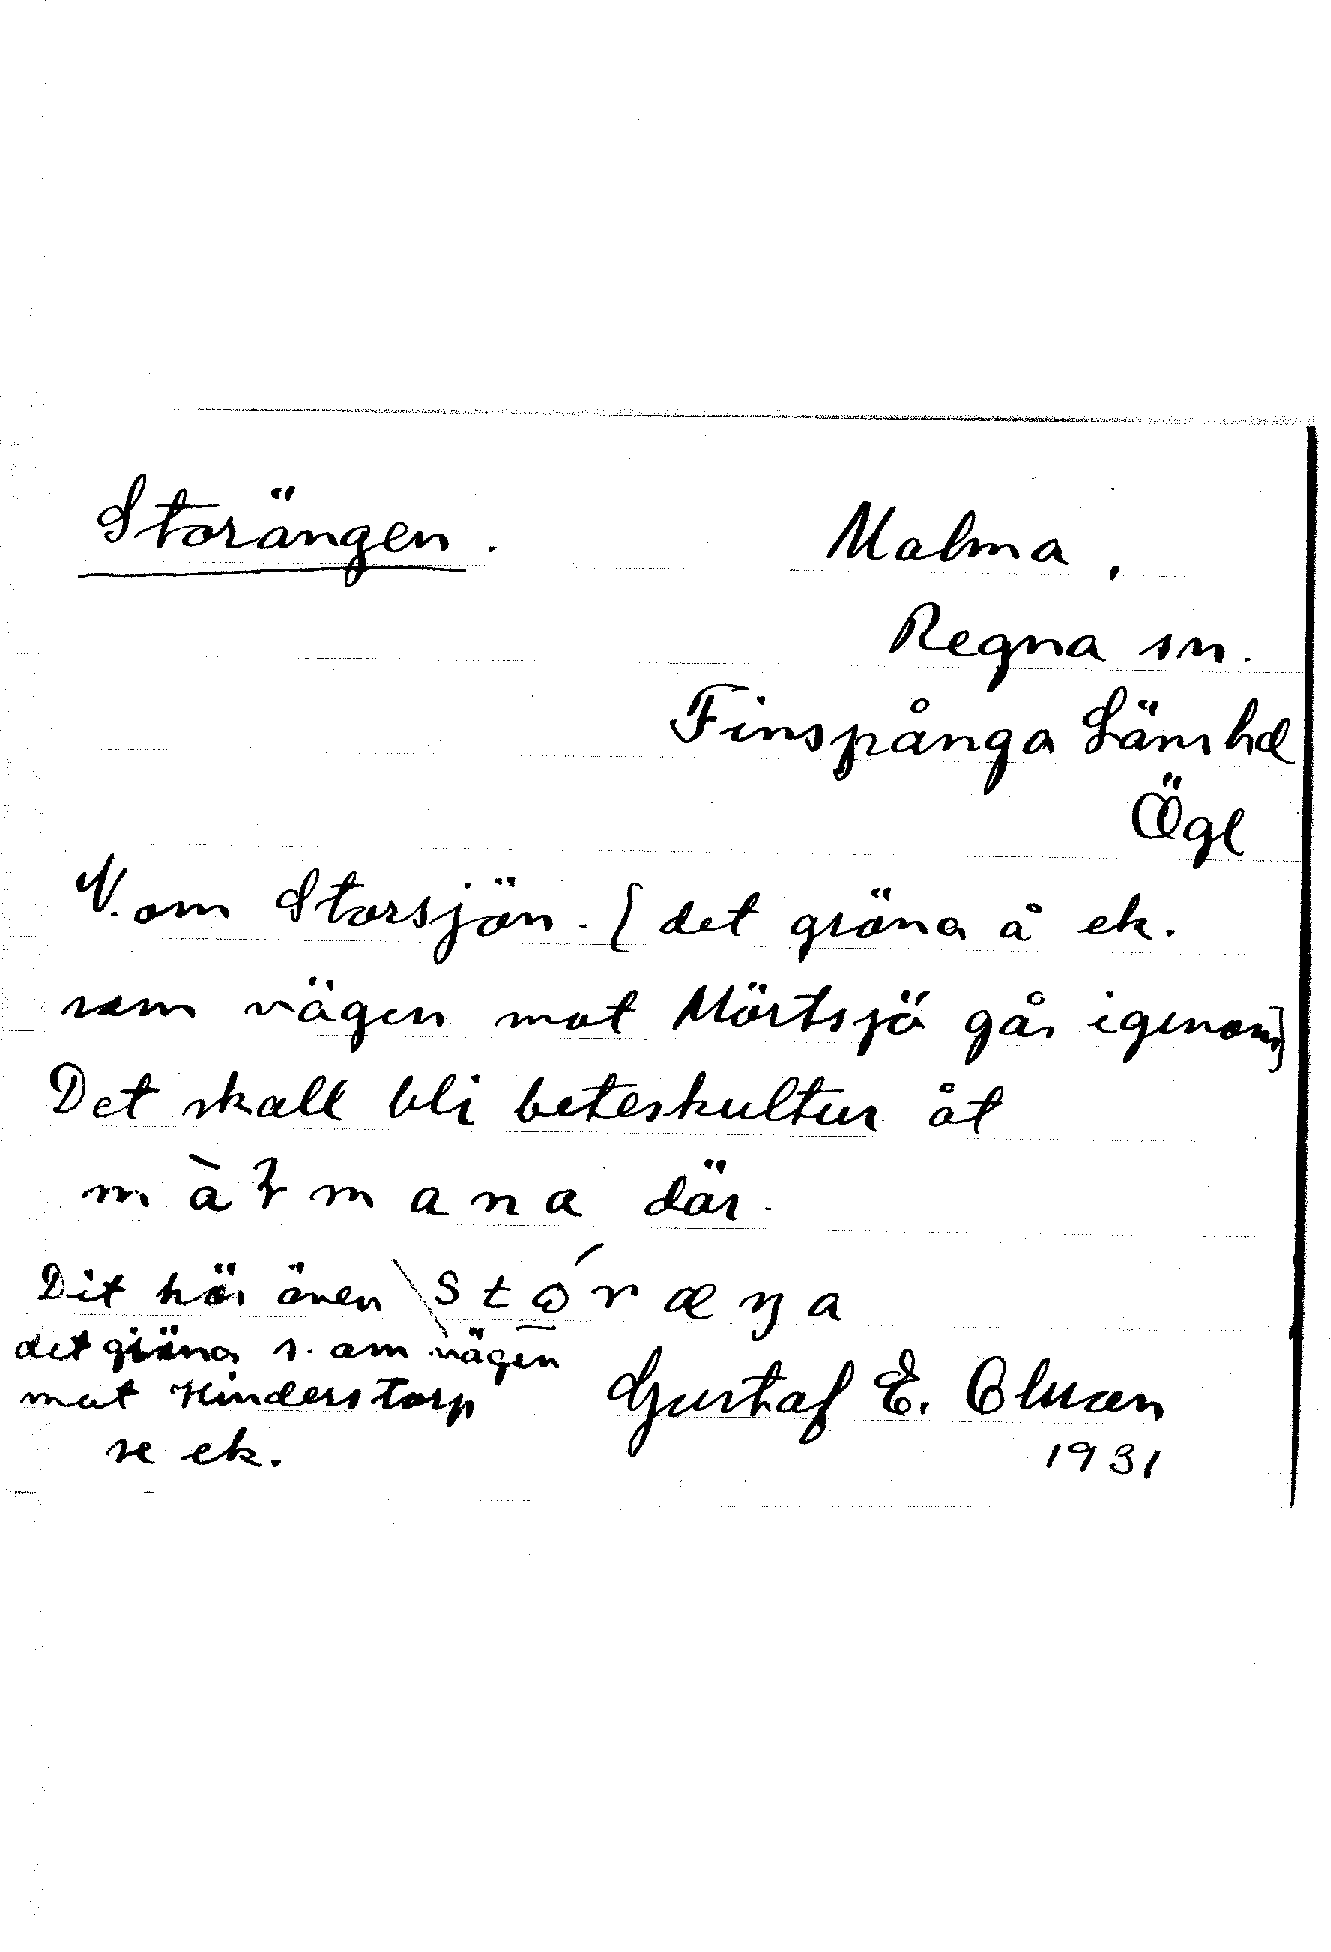 Storängen.
Malma,
Regna sn.
Finspånga Länshd
Ögl
N. om Storsjön. [det gröna å ek.
som vägen mot Mörtsjö går igenom]
Det skall bli beteskultur åt
där.
Dit hör även
det gröna s. om vägen
mot Kinderstorp
se ek.
Gustaf E. Olsson
1931